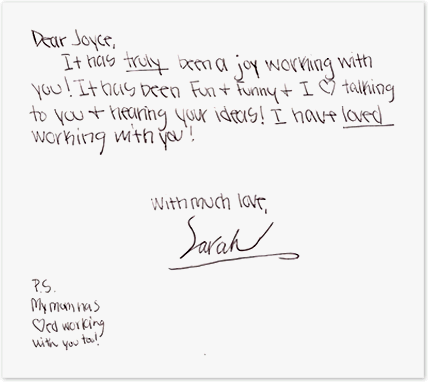 Dear Joyce,
It has truly been a joy working with
you! It has been Fun + Funny + I ♡ talking
to you + hearing your ideas! I have loved
working with you!
with much love,
Sarah
P.S.
My mum has
♡ed working
with you too!